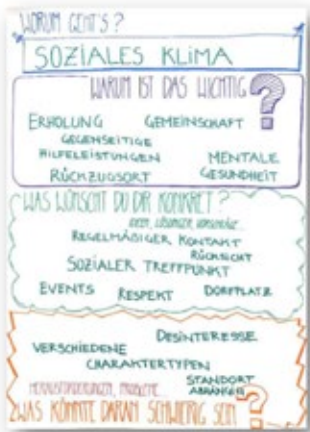 WORUM GEHT'S?
SOZIALES KLIMA
WARUM IST DAS WICHTIG ?
ERHOLUNG GEMEINSCHAFT
GEGENSEITIGE
HILFELEISTUNGEN MENTALE
RÜCKZUGSORT GESUNDHEIT
WAS WÜNSCHT DU DIR KONKRET?
IDEEN, LÖSUNGEN, VORSCHLÄGE...
REGELMÄßIGER KONTAKT
RÜCKSICHT
SOZIALER TREFFPUNKT
EVENTS RESPEKT DORFPLATZ
DESINTERESSE
VERSCHIEDENE
CHARAKTERTYPEN
STANDORT
HERAUSFORDERUNGEN, PROBLEME... ABHÄNGEN
WAS KÖNNTE DARAN SCHWIERIG SEIN ?